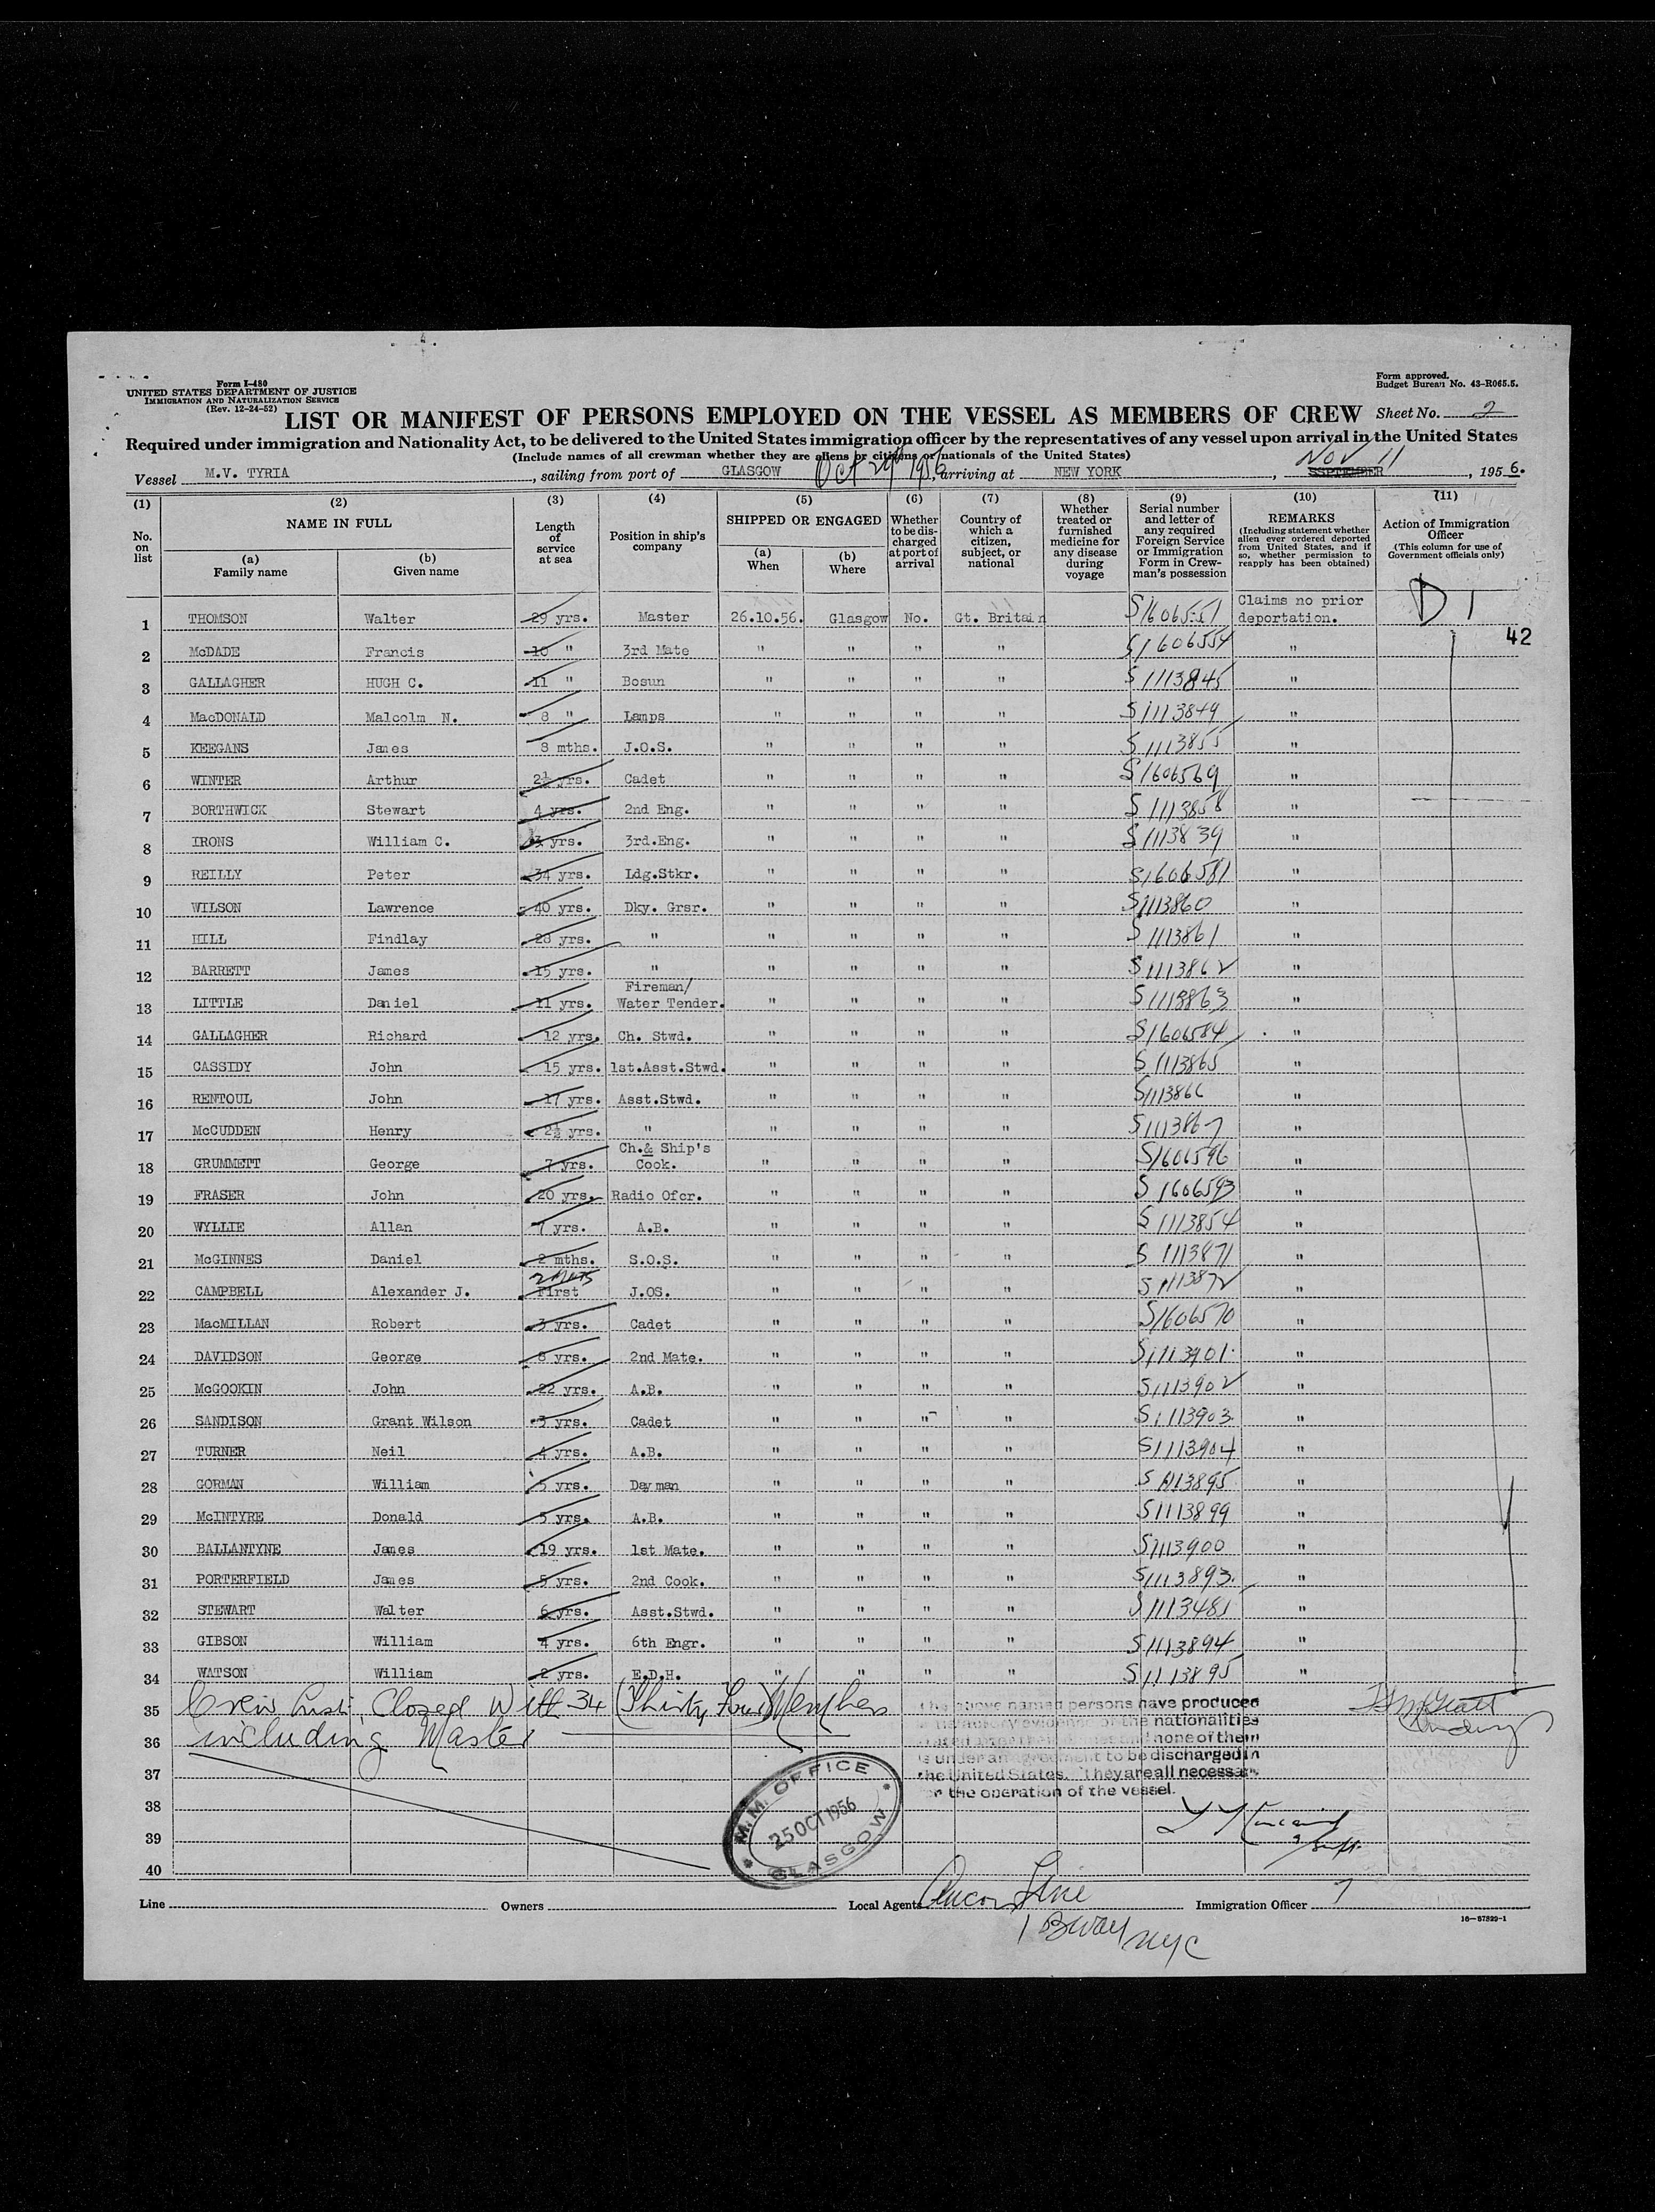 Form I-480
UNITED STATES DEPARTMENT OF JUSTICE
IMMIGRATION AND NATURALIZATION SERVICE
(Rev. 12-24-52)
Form approved.
Budget Bureau No. 43-R065.5.
LIST OR MANIFEST OF PERSONS EMPLOYED ON THE VESSEL AS MEMBERS OF CREW Sheet No. 2
Required under immigration and Nationality Act, to be delivered to the United States immigration officer by the representatives of any vessel upon arrival in the United States
(Include names of all crewman whether they are aliens or citizens or nationals of the United States)
Vessel M.V. TYRIA, sailing from port of GLASGOW Oct 29th 1956, arriving at NEW YORK, SEPTEMBER Nov 11, 1956.
(1) (2) (3) (4) (5) (6) (7) (8) (9) (10) (11)
No. on list
NAME IN FULL
(a) Family name
(b) Given name
Length of service at sea
Position in ship's company
SHIPPED OR ENGAGED
(a) When
(b) Where
Whether to be discharged at port of arrival
Country of which a citizen, subject, or national
Whether treated or furnished medicine for any disease during voyage
Serial number and letter of any required Foreign Service or Immigration Form in Crewman's possession
REMARKS
(Including statement whether alien ever ordered deported from United States, and if so, whether permission to reapply has been obtained)
Action of Immigration Officer
(This column for use of Government officials only)
1 THOMSON Walter 29 yrs. Master 26.10.56. Glasgow No. Gt. Britain S1606551 Claims no prior deportation. D 1
42
2 McDADE Francis 10 " 3rd Mate " " " " S1606554 "
3 GALLAGHER HUGH C. 11 " Bosun " " " " S1113845 "
4 MacDONALD Malcolm N. 8 " Lamps " " " " S1113849 "
5 KEEGANS James 8 mths. J.O.S. " " " " S1113855 "
6 WINTER Arthur 2½ yrs. Cadet " " " " S1606569 "
7 BORTHWICK Stewart 4 yrs. 2nd Eng. " " " " S1113858 "
8 IRONS William C. 3 yrs. 3rd.Eng. " " " " S1113839 "
9 REILLY Peter 34 yrs. Ldg.Stkr. " " " " S1606581 "
10 WILSON Lawrence 40 yrs. Dky. Grsr. " " " " S1113860 "
11 HILL Findlay 28 yrs. " " " " " S1113861 "
12 BARRETT James 15 yrs. " " " " " S1113862 "
13 LITTLE Daniel 11 yrs. Fireman/ Water Tender. " " " " S1113863 "
14 GALLAGHER Richard 12 yrs. Ch. Stwd. " " " " S1606584 "
15 CASSIDY John 15 yrs. 1st.Asst.Stwd. " " " " S1113865 "
16 RENTOUL John 17 yrs. Asst.Stwd. " " " " S1113866 "
17 McCUDDEN Henry 2½ yrs. " " " " " S1113867 "
18 GRUMMETT George 7 yrs. Ch.& Ship's Cook. " " " " S1606596 "
19 FRASER John 20 yrs. Radio Ofcr. " " " " S1606593 "
20 WYLLIE Allan 7 yrs. A.B. " " " " S1113854 "
21 McGINNES Daniel 2 mths. S.O.S. " " " " S1113871 "
22 CAMPBELL Alexander J. First J.OS. " " " " S1113872 "
23 MacMILLAN Robert 3 yrs. Cadet " " " " S1606570 "
24 DAVIDSON George 8 yrs. 2nd Mate. " " " " S1113901 "
25 McGOOKIN John 22 yrs. A.B. " " " " S1113902 "
26 SANDISON Grant Wilson 3 yrs. Cadet " " " " S1113903 "
27 TURNER Neil 4 yrs. A.B. " " " " S1113904 "
28 GORMAN William 5 yrs. Day man " " " " S1113895 "
29 McINTYRE Donald 5 yrs. A.B. " " " " S1113899 "
30 BALLANTYNE James 19 yrs. 1st Mate. " " " " S1113900 "
31 PORTERFIELD James 5 yrs. 2nd Cook. " " " " S1113893 "
32 STEWART Walter 6 yrs. Asst.Stwd. " " " " S1113485 "
33 GIBSON William 4 yrs. 6th Engr. " " " " S1113894 "
34 WATSON William 2 yrs. E.D.H. " " " " S1113895 "
35 Crew List Closed With 34 (Thirty Four) Members
36 including Master
37
38
39
40
The above named persons have produced
satisfactory evidence of the nationalities
none of them
is under an agreement to be discharged in
the United States. They are all necessary
for the operation of the vessel.
M.M. OFFICE
25 OCT 1956
GLASGOW
Line Owners Local Agents Anchor Line Immigration Officer
1 Bway NYC
16—67829-1